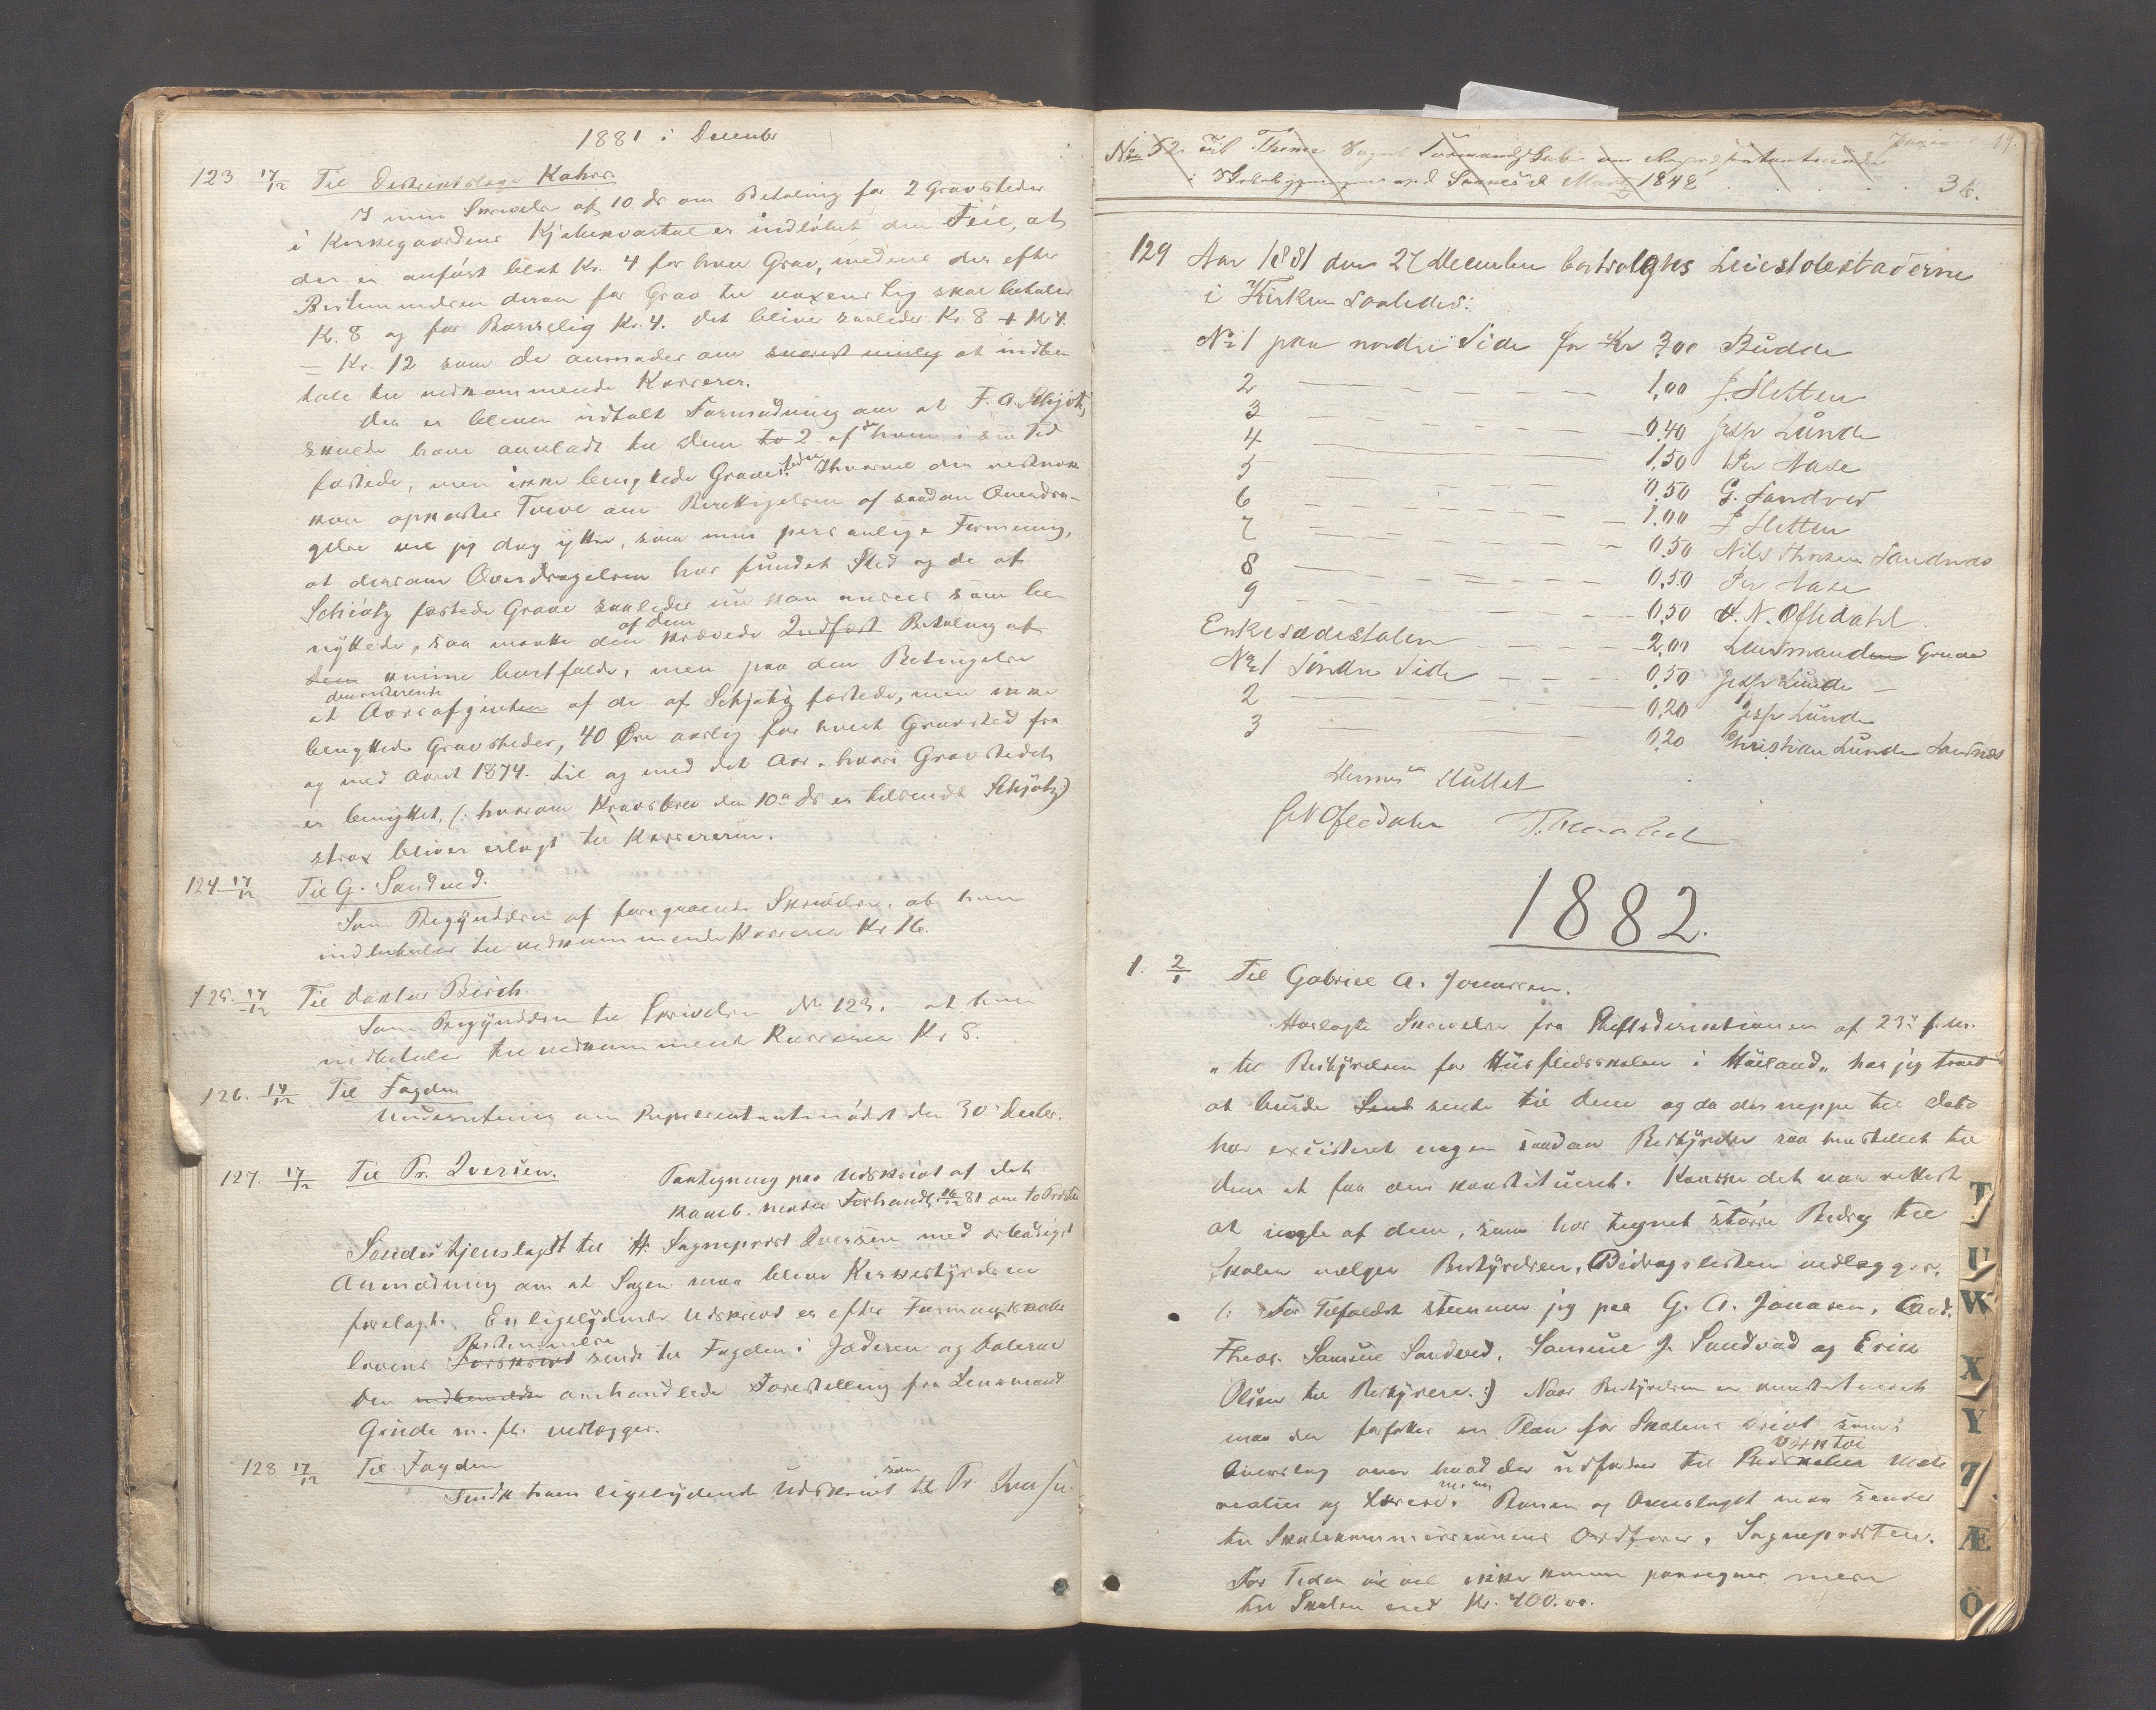 1881 i Decembr
123 17/12 Til Distriktslæge Kahrs.
I min Skrivelse af 10 ds om Betaling for 2 Gravsteder
i Kirkegaardens Kjøbekvartal er indløbet den Feil, at
der er anført blot Kr. 4 for hver Grav, medens der efter
Bestemmelsen derom for Grav til voxent Lig skal betales
Kr. 8 og for Barnelig Kr. 4. Det bliver saaledes Kr. 8 + Kr 4
= Kr. 12 som De anmodes om snarest mulig at indbe
tale til vedkommende Kasserer.
Der er bleven udtalt Formodning om at F. A. Schjøtz
skulde have overladt til Dem to 2 af de ham i sin Tid
fæstede, men ikke benyttede Gravsteder. Ihvorvel der vistnok
kan opkastes Tvivl om Berettigelsen af saadan Overdra-
gelse vil jeg dog ytre, som min personlige Formening,
at dersom Overdragelsen har fundet Sted og de af
Schiøtz fæstede Grave saaledes nu kan ansees som be-
nyttede, saa maatte den af Dem krævede Indfæst Betaling af
Dem kunne bortfalde, men paa den Betingelse
at den resterende Aarsafgiften af de af Schjøtz fæstede, men ikke
benyttede Gravsteder, 40 Øre aarlig for hvert Gravsted fra
og med Aaret 1874. til og med det Aar, hvori Gravstedet
er benyttet, (: hvorom Kravsbrev den 10de ds er tilsendt Schjøtz)
strax bliver erlagt til Kassereren.
124. 17/12 Til G. Sandved.
Som Begyndelsen af foregaaende Skrivelse, at han
indbetaler til vedkommende Kasserer Kr 16.
125. 17/12 Til doktor Birch.
Som Begyndelsen til Skrivelse No 123. at han
indbetaler til vedkommende Kasserer Kr 8.
126. 17/12 Til Fogden
Underretning om Representantmødet den 30te Decbr.
127. 17/12 Til Pr. Iversen. Paategning paa Udskrivt af det
komb. Møtes Forhandl. 16/12 81 om to Præster
Sendes tjenstligst til Hr. Sogneprest Iversen med ærbødigst
Anmodning om at Sagen maa blive Kirkestyrelsen
forelagt. En ligelydende Udskrivt er efter Formandskabs
lovens Forskrivt Bestemmelse sendt til Fogden i Jæderen og Dalerne
Den vedbemeldte omhandlede Forestilling fra Lensmand
Grude m. fl. vedlægges.
128 17/12 Til Fogden
Sendt ham ligelydende Udskrivt som til Pr. Iversen.
No 52. Til Thime Sogns Formandskab om Repræsentantmøde
i Skolebygningen ved Sannæs d Marts 1842 . . . . . 36.
129 Aar 1881 den 27 December bortsolgtes Leiestolestaderne
i Kirken saaledes:
No 1 paa nordre Side for Kr 3,00 Budde
2 — — — 1,00 J. Sletten
3 — — — 0,40 Jesp Lunde
4 — — — 1,50 Per Aase
5 — — — 0,50 G. Sandved
6 — — — 1,00 J Sletten
7 — — — 0,50 Nils Thorsen Sandnæs
8 — — — 0,50 Per Aase
9 — — — 0,50 H. N. Oftedahl
Enkesædestolen — — — 2,00 Lensmanden Grude
No 1 Søndre Side — — — 0,50 Jesp Lunde —
2 — — — 0,20 Jesp Lunde
3 — — — 0,20 Christian Lunde Sandnæs
1882.
1. 2/1 Til Gabriel A. Jonassen.
Hoslagte Skrivelse fra Stiftsdirektionen af 23de f. M.
"til Bestyrelsen for Husflidsskolen i Høiland" har jeg troed
at burde Send sende til Dem og da der neppe til Dato
har existeret nogen saadan Bestyrelse saa henstilles til
Dem at faa den konstitueret. Kanske det var rettest
at nogle af dem, som har tegnet større Bidrag til
Skolen vælger Bestyrelsen, Bidragslisten vedlægges.
(: For Tilfældet stemmer jeg paa G. A. Jonasen, Cand.
Theol. Samuel Sandved, Samuel J. Sandvad og Erik
Olsen til Bestyrere. :) Naar Bestyrelsen er konstitueret
maa der forfattes en Plan for Skolens Drivt samt
Overslag over hvad der udfordres til Redskaber Verktøi Mate
realier og Lærere. m. m. Planen og Overslaget maa sendes
til Skolekommissionens Ordfører, Sognepresten.
For Tiden vil vel ikke kunne paaregnes mere
til Skolen end Kr. 400.00.
T
U
W
X
Y
Z
Æ
Ö